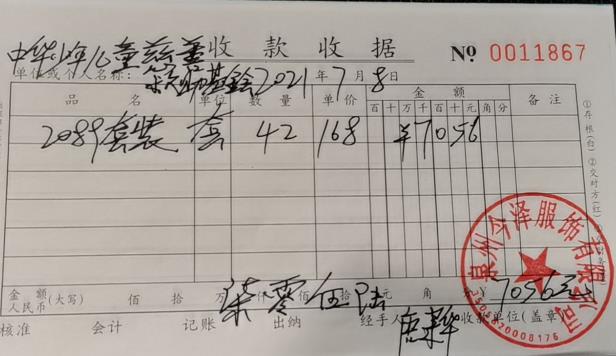 收款收据 № 0011867
中华少年儿童慈善
单位或个人名称: 基金 2021年7月8日
品名 单位 数量 单价 金额 备注
百十万千百十元角分
2089套装 套 42 168 ¥7056
金额人民币(大写) 佰 拾 万柒仟零佰伍拾陆元 角 分 ¥7056元
核准 会计 记账 出纳 经手人 收款单位(盖章)
泉州今泽服饰有限公司
①存根(白) ②交对方(红)